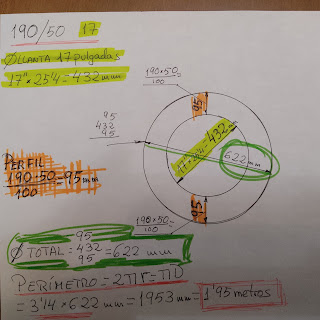 190/50 17
Ø LLANTA 17 pulgadas
17" x 25'4 = 432 mm
190×50
100
95
432
95
95
17" x 25'4 = 432 mm
622 mm
PERFIL
190·50 = 95 mm
100
95
190×50
100
95
Ø TOTAL = 432 = 622 mm
95
PERÍMETRO = 2πr = πD
= 3'14 x 622 mm = 1953 mm = 1'95 metros